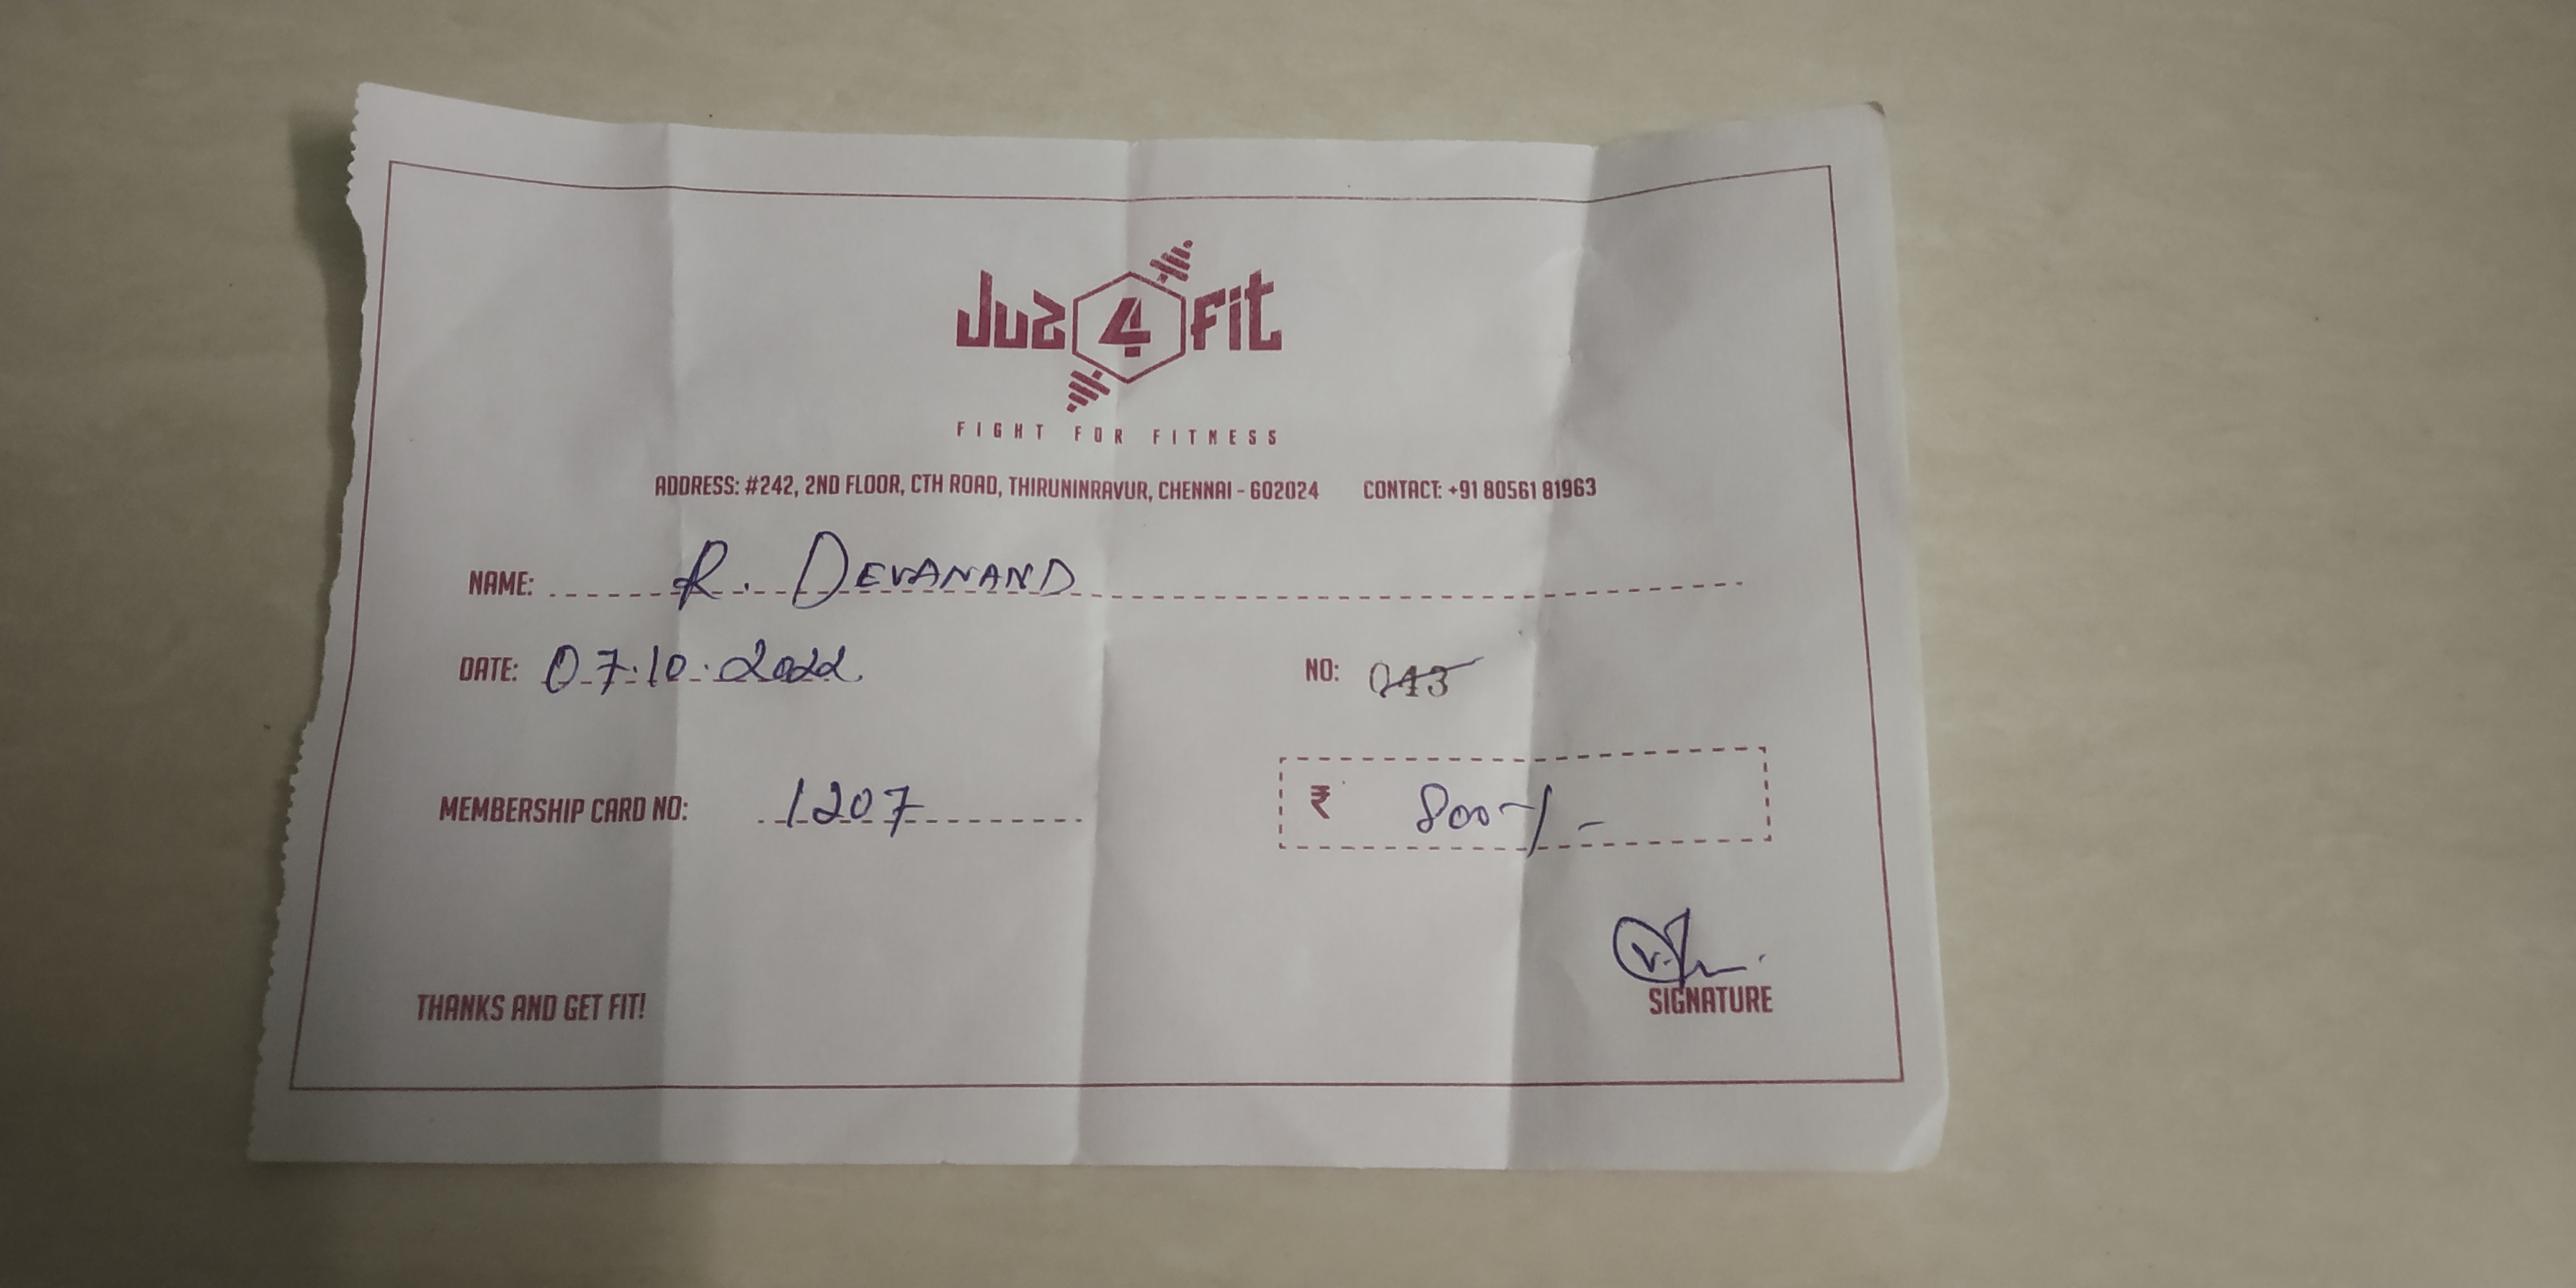 Juz 4 Fit
FIGHT FOR FITNESS
ADDRESS: #242, 2ND FLOOR, CTH ROAD, THIRUNINRAVUR, CHENNAI - 602024 CONTACT: +91 80561 81963
NAME: R. DEVANAND
DATE: 07.10.2022 NO: 043
MEMBERSHIP CARD NO: 1207 ₹ 800-/-
THANKS AND GET FIT! SIGNATURE